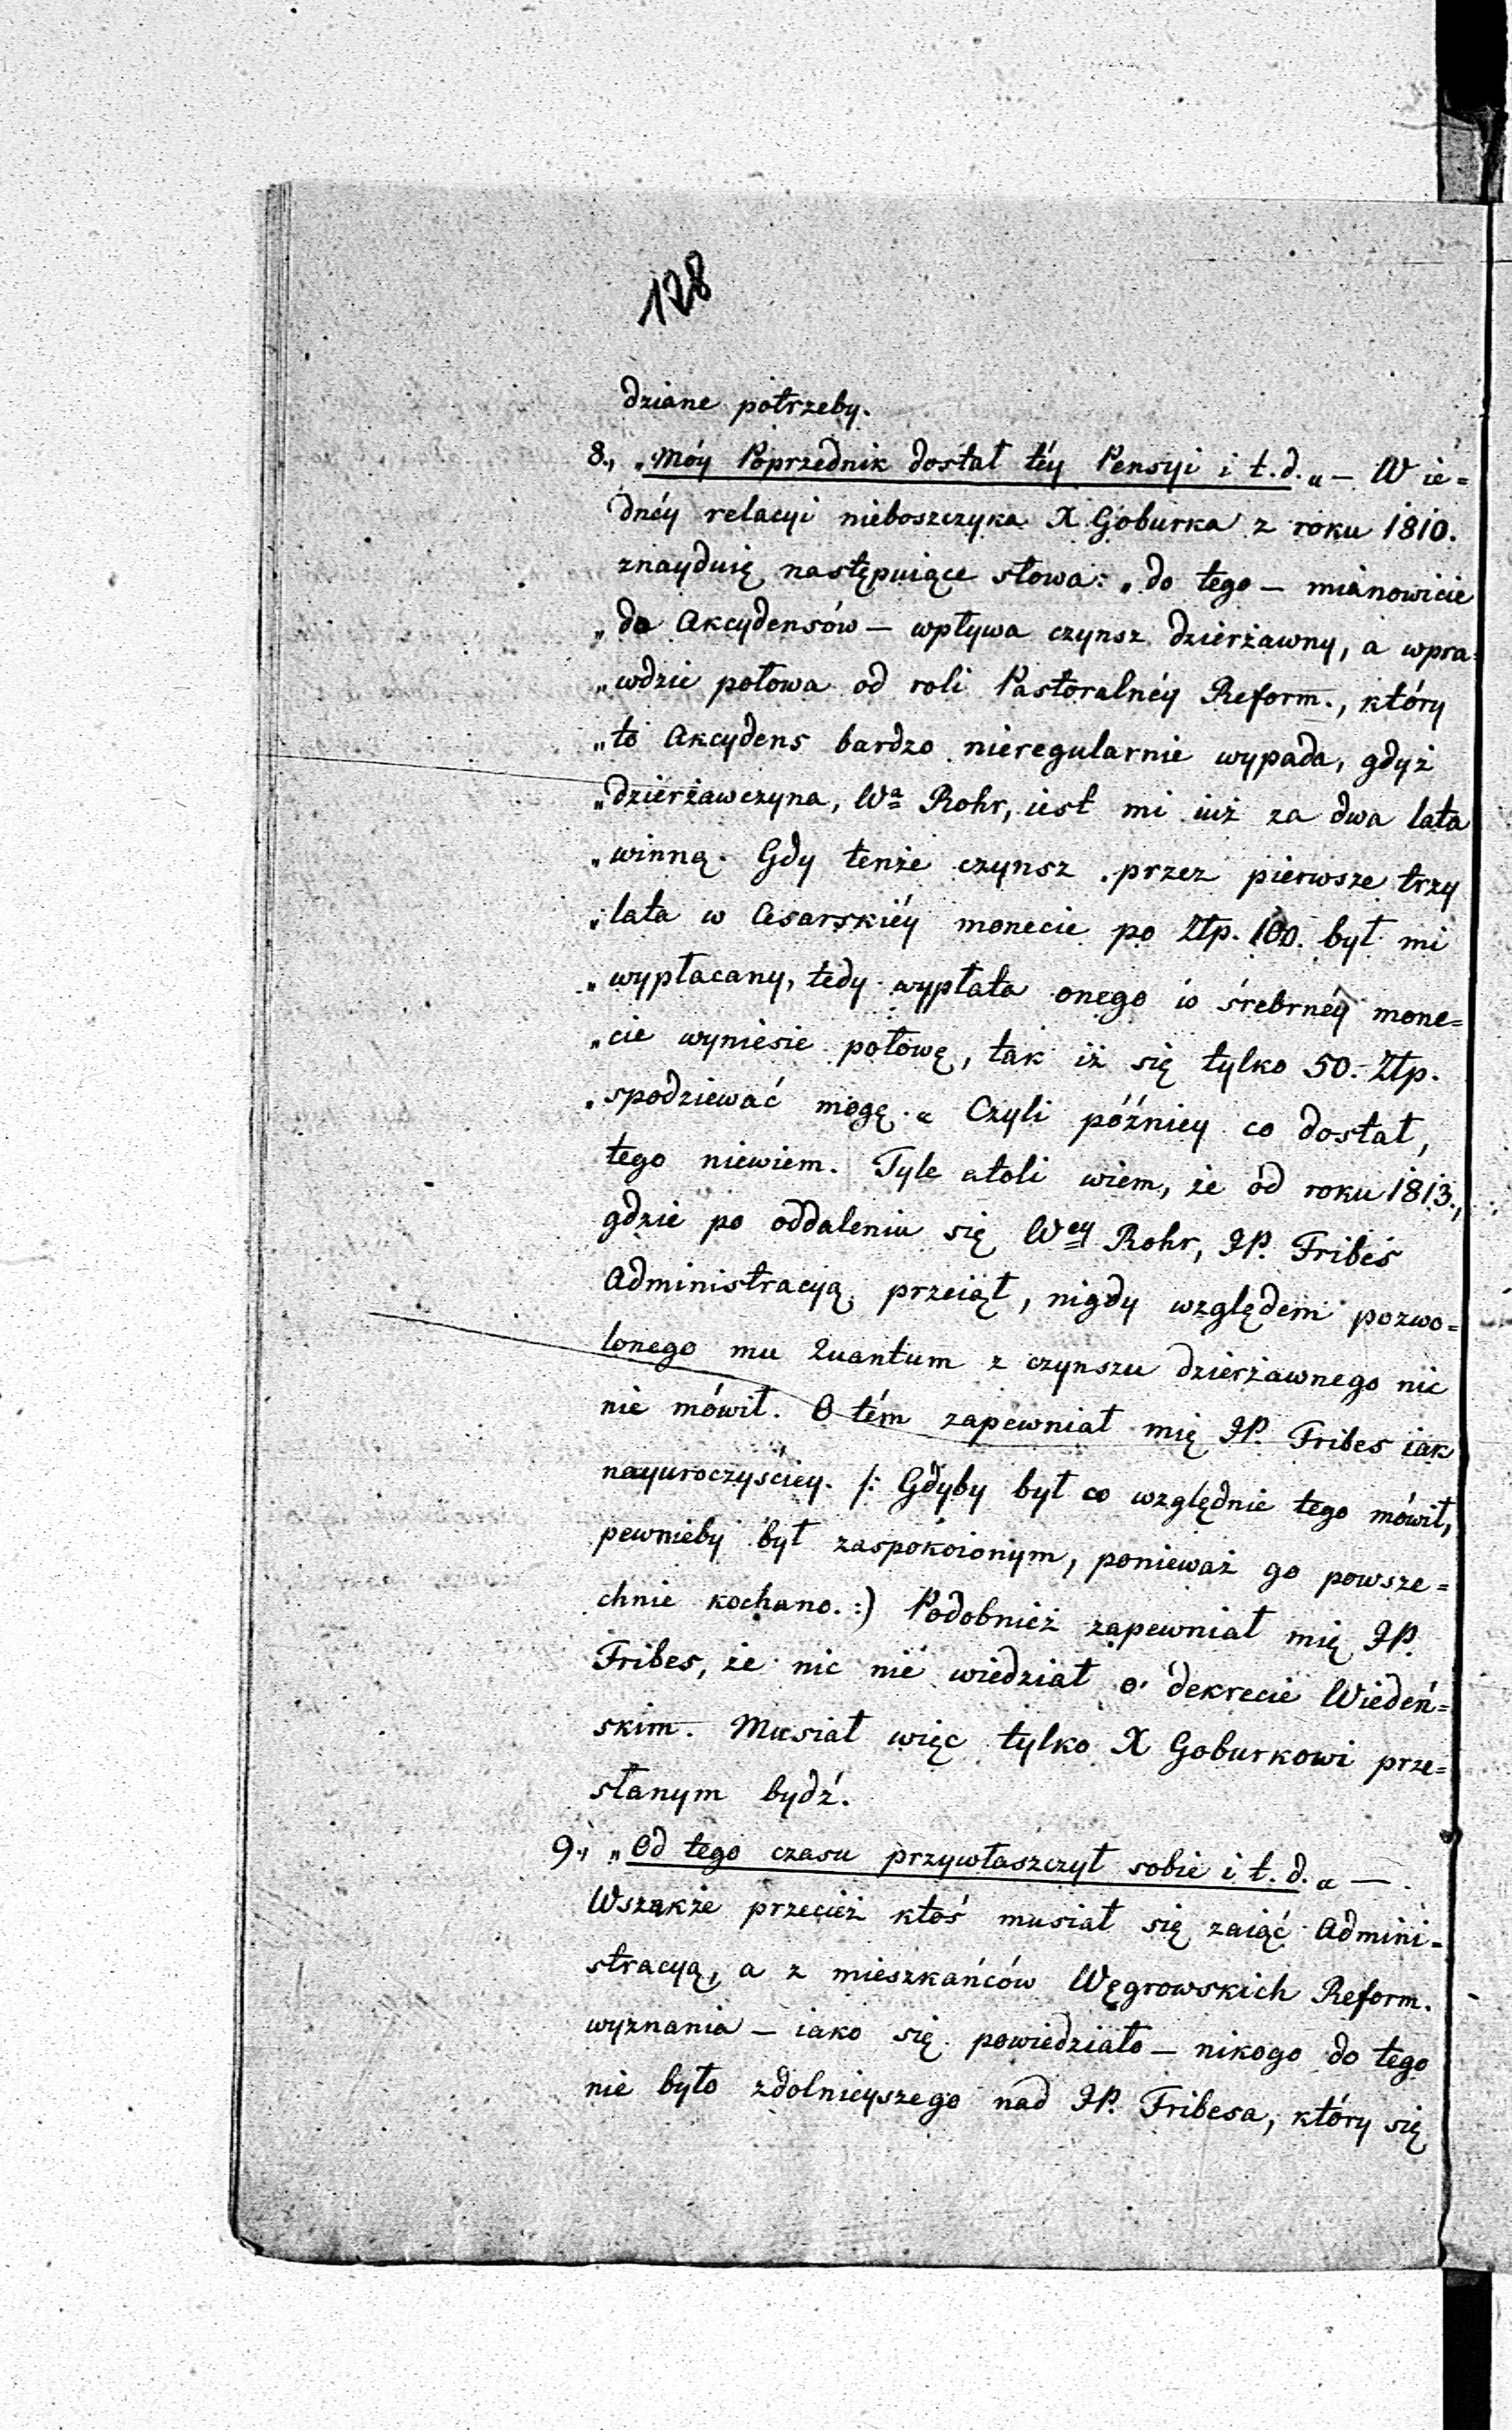 128
dziane potrzeby.
8., „Móy Poprzednik dostał téy Pensyi i t.d.“ — W ie=
dnéy relacyi nieboszczyka X Goburka z roku 1810.
znayduię następuiące słowa: „do tego — mianowicie
„do Akcydensów — wpływa czynsz dzierżawny, a wpra=
„wdzie połowa od roli Pastoralnéy Reform., który
„to Akcydens bardzo nieregularnie wypada, gdyż
„dzierżawczyna, Wa Rohr, iest mi iuż za dwa lata
„winną. Gdy tenże czynsz przez pierwsze trzy
„lata w Cesarskiéy monecie po Złp. 100. był mi
„wypłacany, tedy wypłata onego w śrebrnéy mone=
„cie wyniesie połowę, tak iż się tylko 50. Złp.
„spodziewać mogę.“ Czyli późniey co dostał,
tego niewiem. Tyle atoli wiem, że od roku 1813.,
gdzie po oddaleniu się Wey Rohr, JP. Fribes
Administracyą przeiął, nigdy względem pozwo=
lonego mu Quantum z czynszu dzierżawnego nic
nie mówił. O tém zapewniał mię JP. Fribes iak
nayuroczyściey. /: Gdyby był co względnie tego mówił,
pewnieby był zaspokoionym, ponieważ go powsze=
chnie kochano. :) Podobnież zapewniał mię JP.
Fribes, że nic nie wiedział o dekrecie Wiedeń=
skim. Musiał więc tylko X Goburkowi prze=
słanym bydź.
9., „Od tego czasu przywłaszczył sobie i t.d.“ —
Wszakże przecież ktoś musiał się zaiąć Admini=
stracyą, a z mieszkańców Węgrowskich Reform.
wyznania — iako się powiedziało — nikogo do tego
nie było zdolnieyszego nad JP. Fribesa, który się